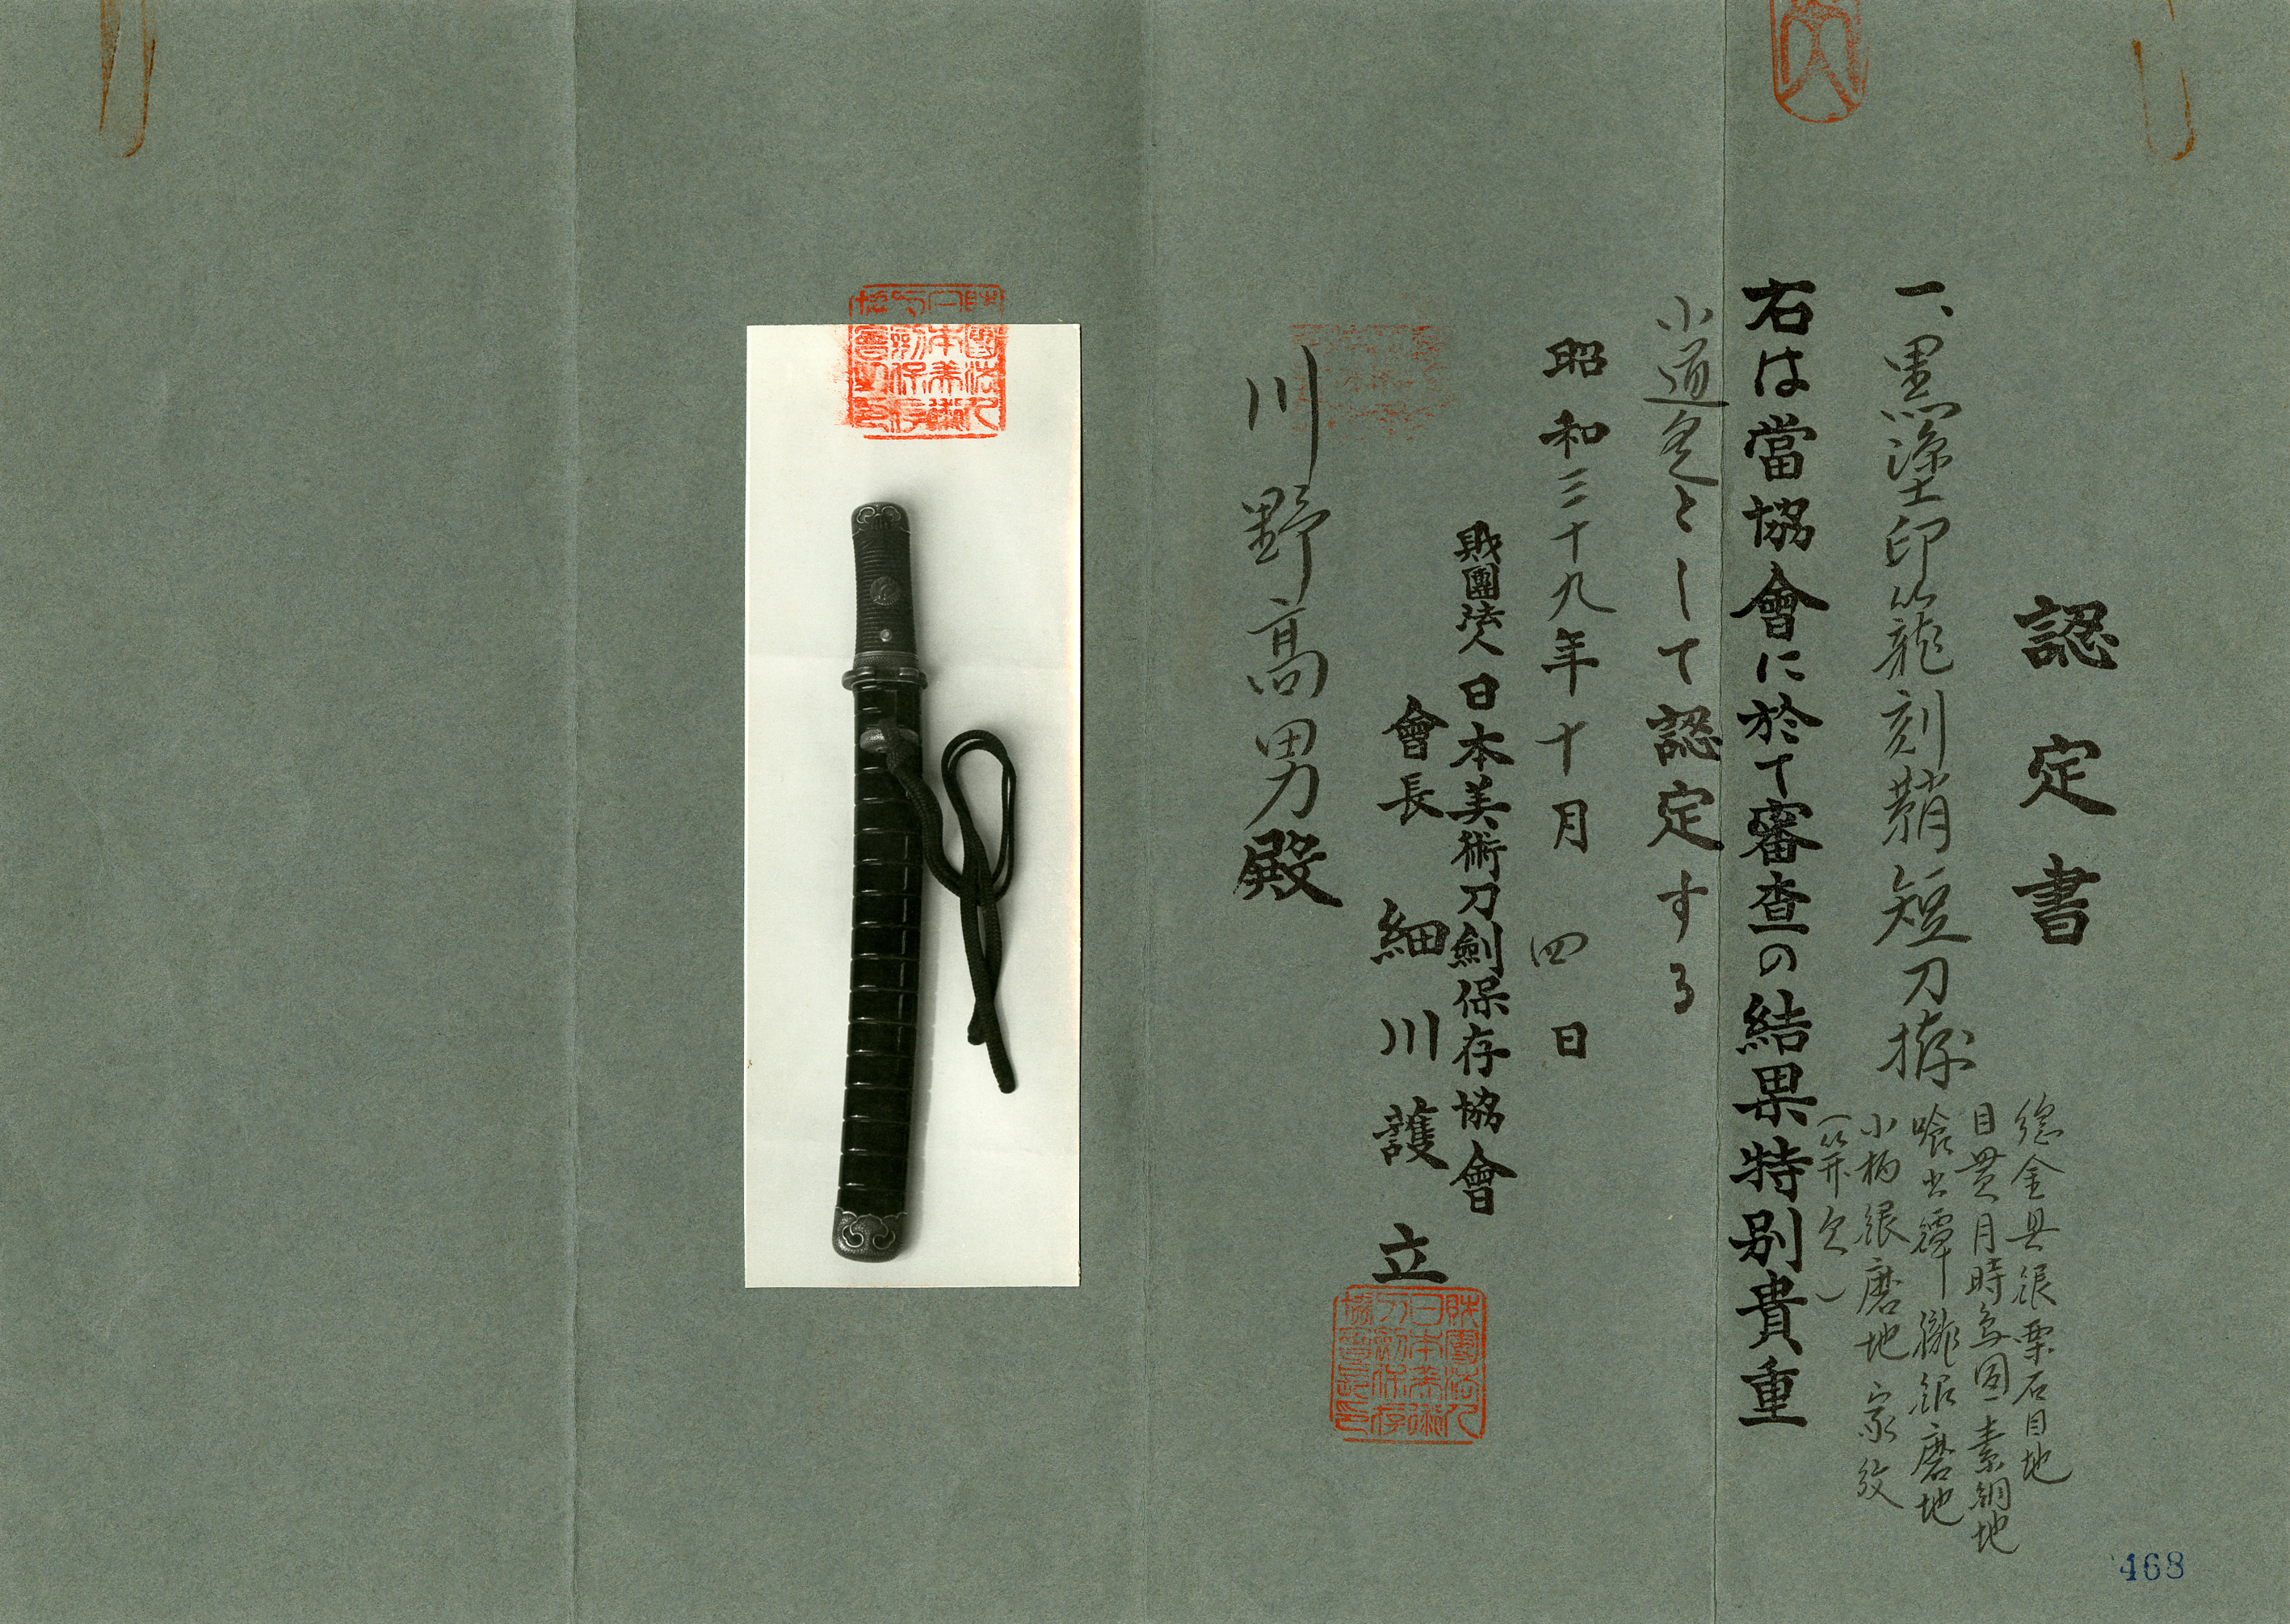 認定書
一、黒塗印籠刻鞘短刀拵
総金具銀栗石目地
目貫月時鳥図素銅地
喰出鐔 朧銀磨地
小柄銀磨地 家紋
(笄欠)
右は當協會に於て審査の結果特別貴重
小道具として認定する
昭和三十九年十月四日
財團法人日本美術刀劍保存協會
會長 細川護立
川野高男殿
財團法人日本美術刀劍保存協會長之印
468